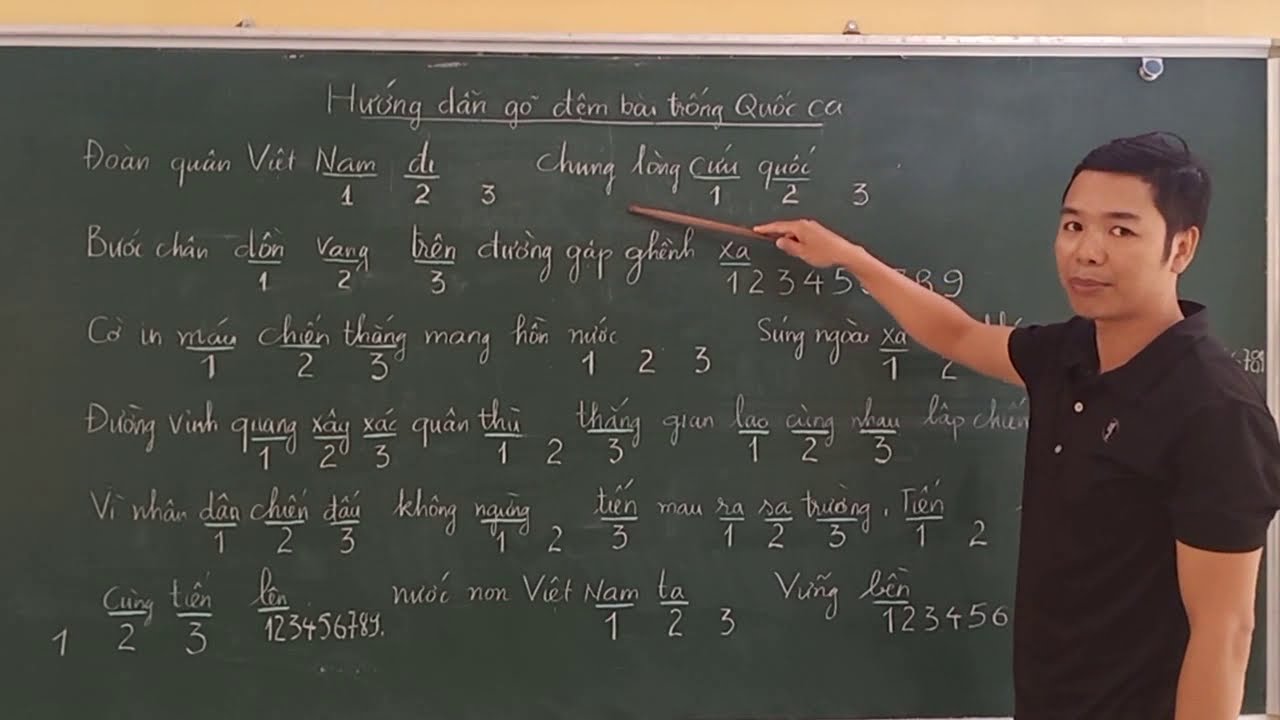 Hướng dẫn gõ đệm bài trống Quốc ca
Đoàn quân Việt Nam đi Chung lòng cứu quốc
1 2 3 1 2 3
Bước chân dồn vang trên đường gập ghềnh xa
1 2 3 1 2 3 4 5 8 9
Cờ in máu chiến thắng mang hồn nước Súng ngoài xa
1 2 3 1 2 3 1 2 789
Đường vinh quang xây xác quân thù thắng gian lao cùng nhau lập chiến
1 2 3 1 2 3 1 2 3
Vì nhân dân chiến đấu không ngừng tiến mau ra sa trường, Tiến
1 2 3 1 2 3 1 2 3 1 2
Cùng tiến lên nước non Việt Nam ta Vững bền
1 2 3 123456789. 1 2 3 1 2 3 4 5 6